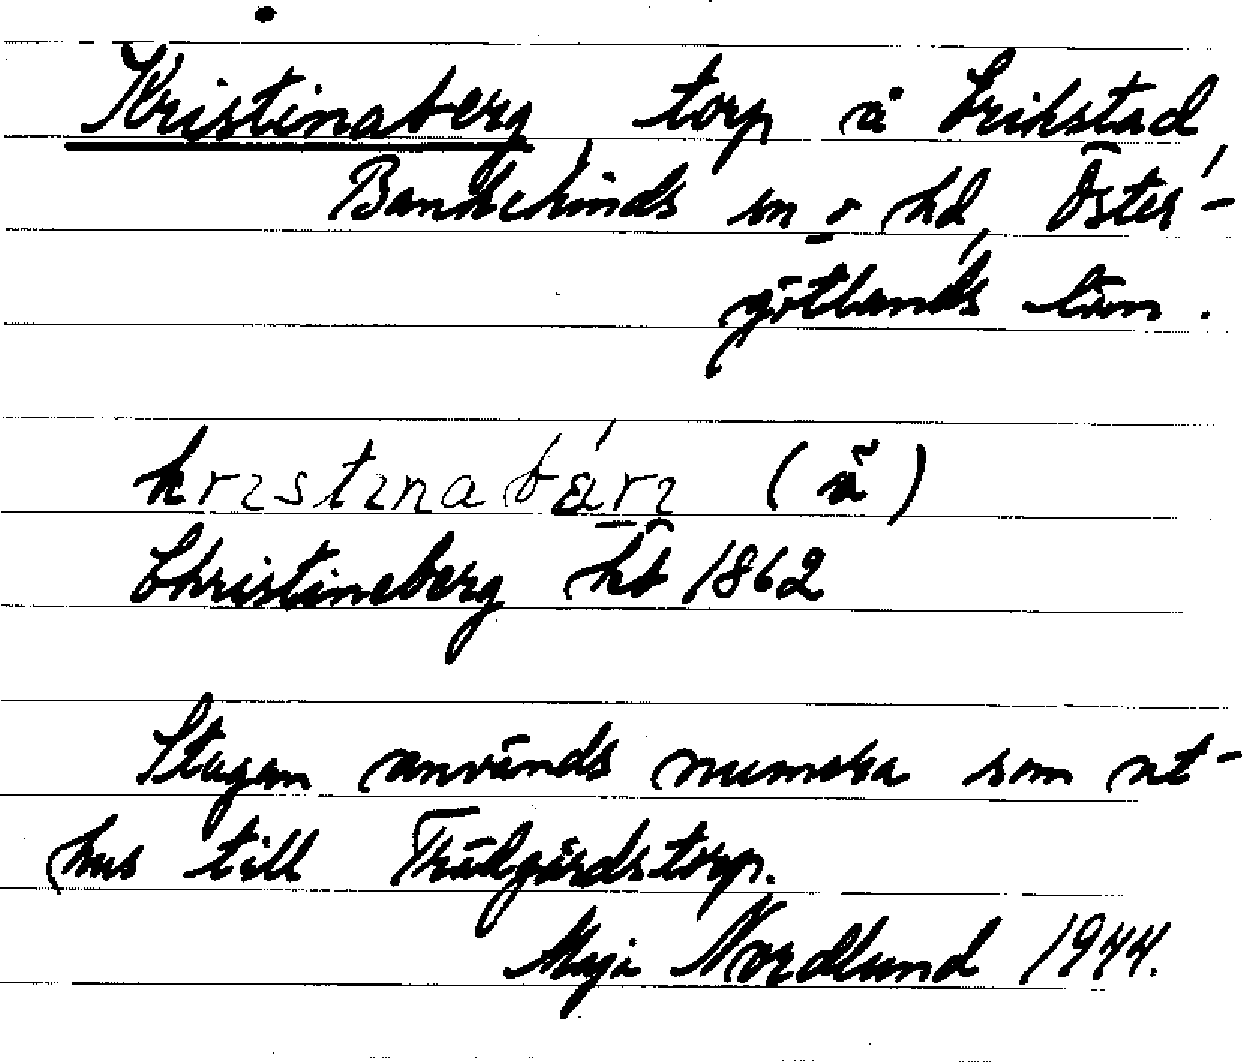 Kristinaberg, torp å Erikstad,
Bankekinds sn o hd, Öster-
götlands län.
kristinabärj (å)
Christineberg hfl 1862
Stugan används numera som ut-
hus till Trädgårdstorp.
Maja Nordlund 1944.